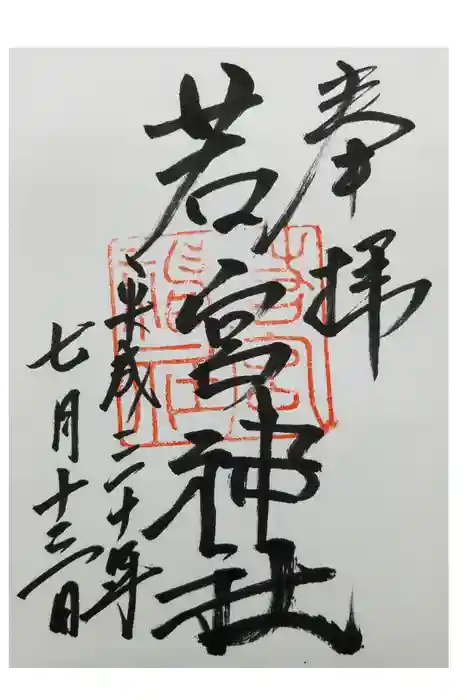 奉拝
若宮神社
平成二十年
七月十三日